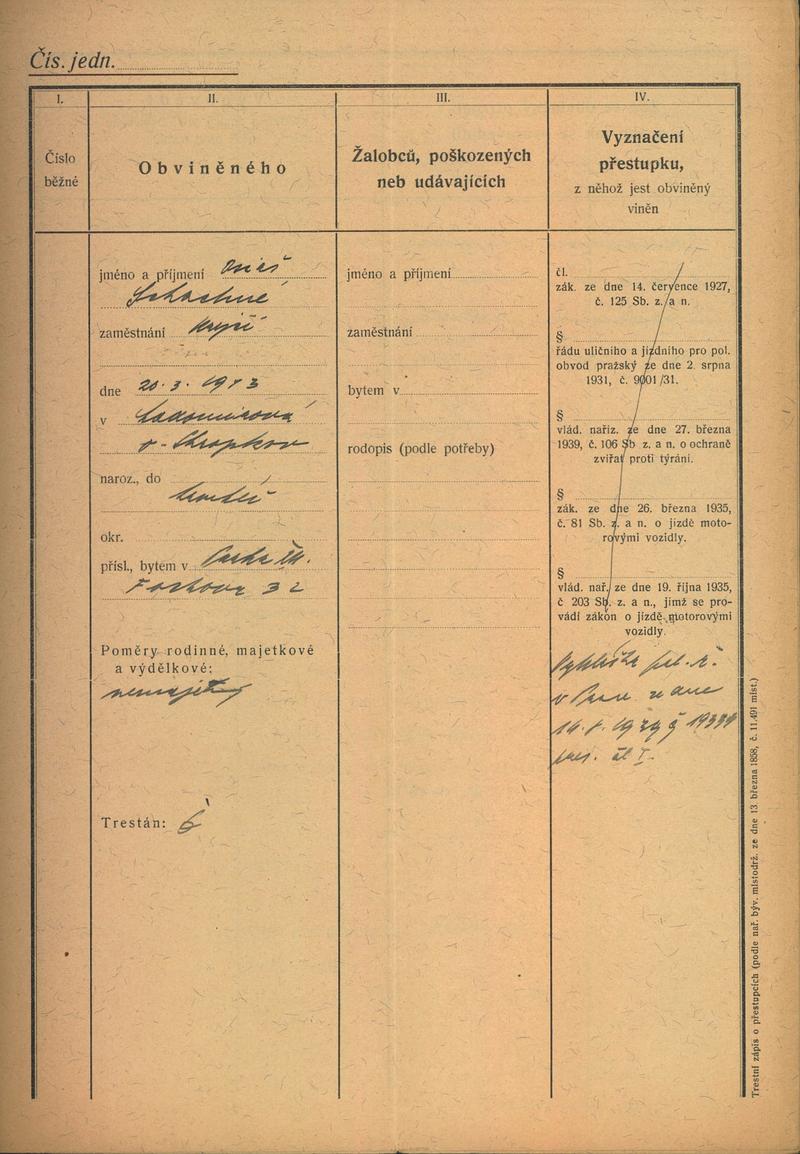 Čís. jedn.
I.
Číslo
běžné
II.
Obviněného
jméno a příjmení
zaměstnání
dne 20. 3. 1913
v
naroz., do
okr.
přísl., bytem v
32
Poměry rodinné, majetkové
a výdělkové:
nemajetný
Trestán:
III.
Žalobců, poškozených
neb udávajících
jméno a příjmení
zaměstnání
bytem v
rodopis (podle potřeby)
IV.
Vyznačení
přestupku,
z něhož jest obviněný
viněn
čl.
zák. ze dne 14. července 1927,
č. 125 Sb. z. a n.
§
řádu uličního a jízdního pro pol.
obvod pražský ze dne 2. srpna
1931, č. 9001/31.
§
vlád. naříz. ze dne 27. března
1939, č. 106 Sb z. a n. o ochraně
zvířat proti týrání.
§
zák. ze dne 26. března 1935,
č. 81 Sb. z. a n. o jízdě moto-
rovými vozidly.
§
vlád. nař. ze dne 19. října 1935,
č 203 Sb. z. a n., jímž se pro-
vádí zákon o jízdě motorovými
vozidly.
Vyhláška pol. ř.
v Praze ze dne
čl I.
Trestní zápis o přestupcích (podle nař. býv. místodrž. ze dne 13. března 1858, č. 11.491 míst.)